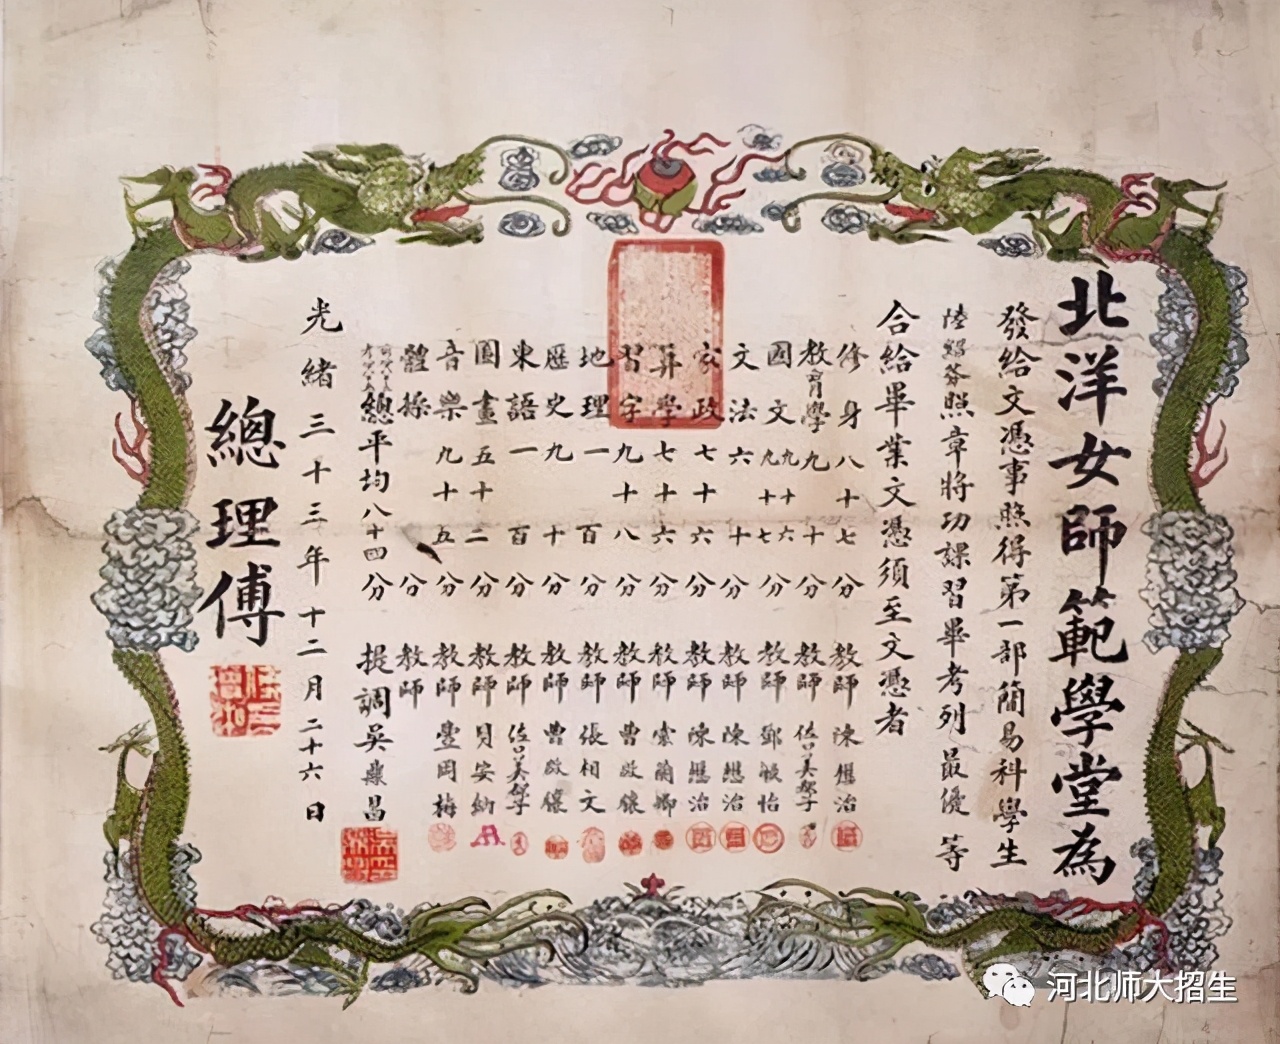 北洋女師範學堂為
發給文憑事照得第一部簡易科學生
陸紹芬照章將功課習畢考列最優等
合給畢業文憑須至文憑者
修身八十七分 教師 陳懋治
教育學九十分 教師 佐口美都子
國文九十六 九十七分 教師 鄧毓怡
文法六十分 教師 陳懋治
家政七十六分 教師 陳懋治
算學七十六分 教師 蘭卿
習字九十八分 教師 曹啟
地理一百分 教師 張相文
歷史九十分 教師 曹啟
東語一百分 教師 佐口美都子
圖畫五十二分 教師 貝安納
音樂九十五分 教師 豊岡梅
體操 分 教師
總平均八十四分 提調吳鼎昌
光緒三十三年十二月二十六日
總理傅
河北师大招生